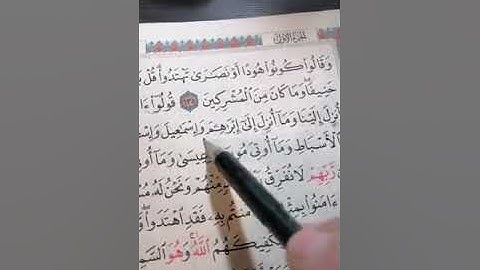 الجزء الأول
وَقَالُوا۟ كُونُوا۟ هُودًا أَوْ نَصَـٰرَىٰ تَهْتَدُوا۟ قُلْ
حَنِيفًا وَمَا كَانَ مِنَ ٱلْمُشْرِكِينَ ١٣٥ قُولُوٓا۟
أُنزِلَ إِلَيْنَا وَمَآ أُنزِلَ إِلَىٰٓ إِبْرَٰهِـۧمَ وَإِسْمَـٰعِيلَ
ٱلْأَسْبَاطِ وَمَآ أُوتِىَ عِيسَىٰ وَمَآ
رَّبِّهِمْ لَا نُفَرِّقُ مِّنْهُمْ وَنَحْنُ لَهُۥ
ءَامَنُوا۟ بِمِثْلِ بِهِۦ فَقَدِ ٱهْتَدَوا۟
ٱللَّهُ وَهُوَ